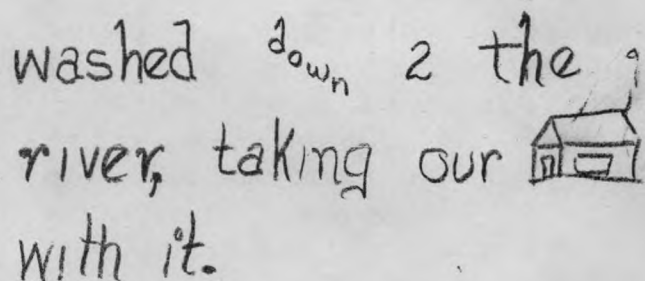 washed down 2 the
river, taking our
with it.